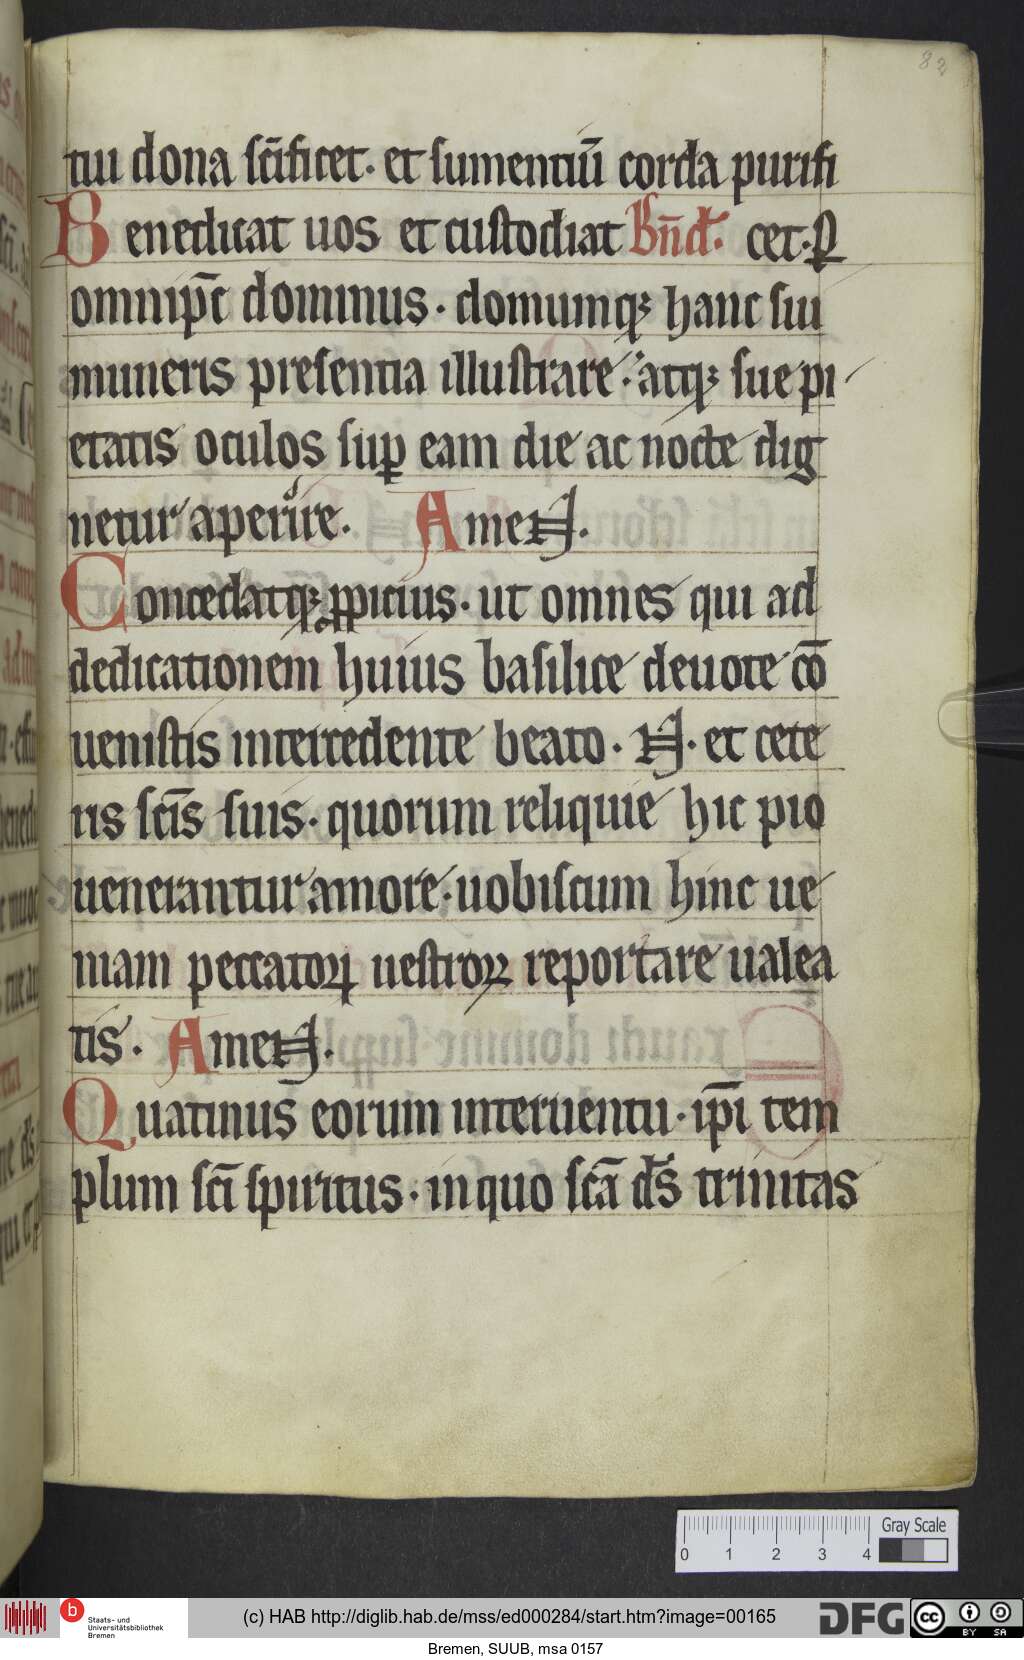 82
tui dona sc̄ificet. et sumentiū corda purifi
Benedicat uos et custodiat Bn̄d. cet. p̲
omnip̄c dominus. domumqꝫ hanc sui
muneris presentia illustrare. atqꝫ sue pi
etatis oculos suꝑ eam die ac nocte dig
netur aperire. AmeN.
Concedatqꝫ ꝓpicius. ut omnes qui ad
dedicationem huius basilice deuote cō
uenistis intercedente beato. N. et cete
ris sc̄is suis. quorum reliquie hic pio
uenerantur amore. uobiscum hinc ue
niam peccatoꝝ uestroꝝ reportare ualea
tis. AmeN.
Quatinus eorum interuentu. ip̄i tem
plum sc̄i spiritus. in quo sc̄a ds̄ trinitas
0 1 2 3 4
Gray Scale
Staats- und
Universitätsbibliothek
Bremen
(c) HAB http://diglib.hab.de/mss/ed000284/start.htm?image=00165
DFG
cc BY SA
Bremen, SUUB, msa 0157